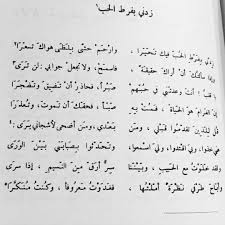 زدني بفرط الحب
زدني بفرط الحب فيك تحيّرا ، وارحم حشى بلظى هواك تسعّرا
وإذا سألتك أن أراك حقيقة ، فاسمح ، ولا تجعل جوابي : لن ترى
قلب ! أنت وعدتني في حبهم صبرا ، فحاذر أن تضيق وتضجرا
إن الغرام هو الحياة ، فمت به صبّا ، فحقك أن تموت ، وتعذرا
للذين تقدموا قبلي ، ومن بعدي ، ومن أضحى لأشجاني يرى :
خذوا ، وبي اقتدوا ، ولي اسمعوا ، وتحدثوا بصبابتي بين الورى
ولقد خلوت مع الحبيب ، وبيننا سرّ أرق من النسيم ، إذا سرى
وأباح طرفي نظرة أملتها ، فغدوت معروفا ، وكنت منكّرا